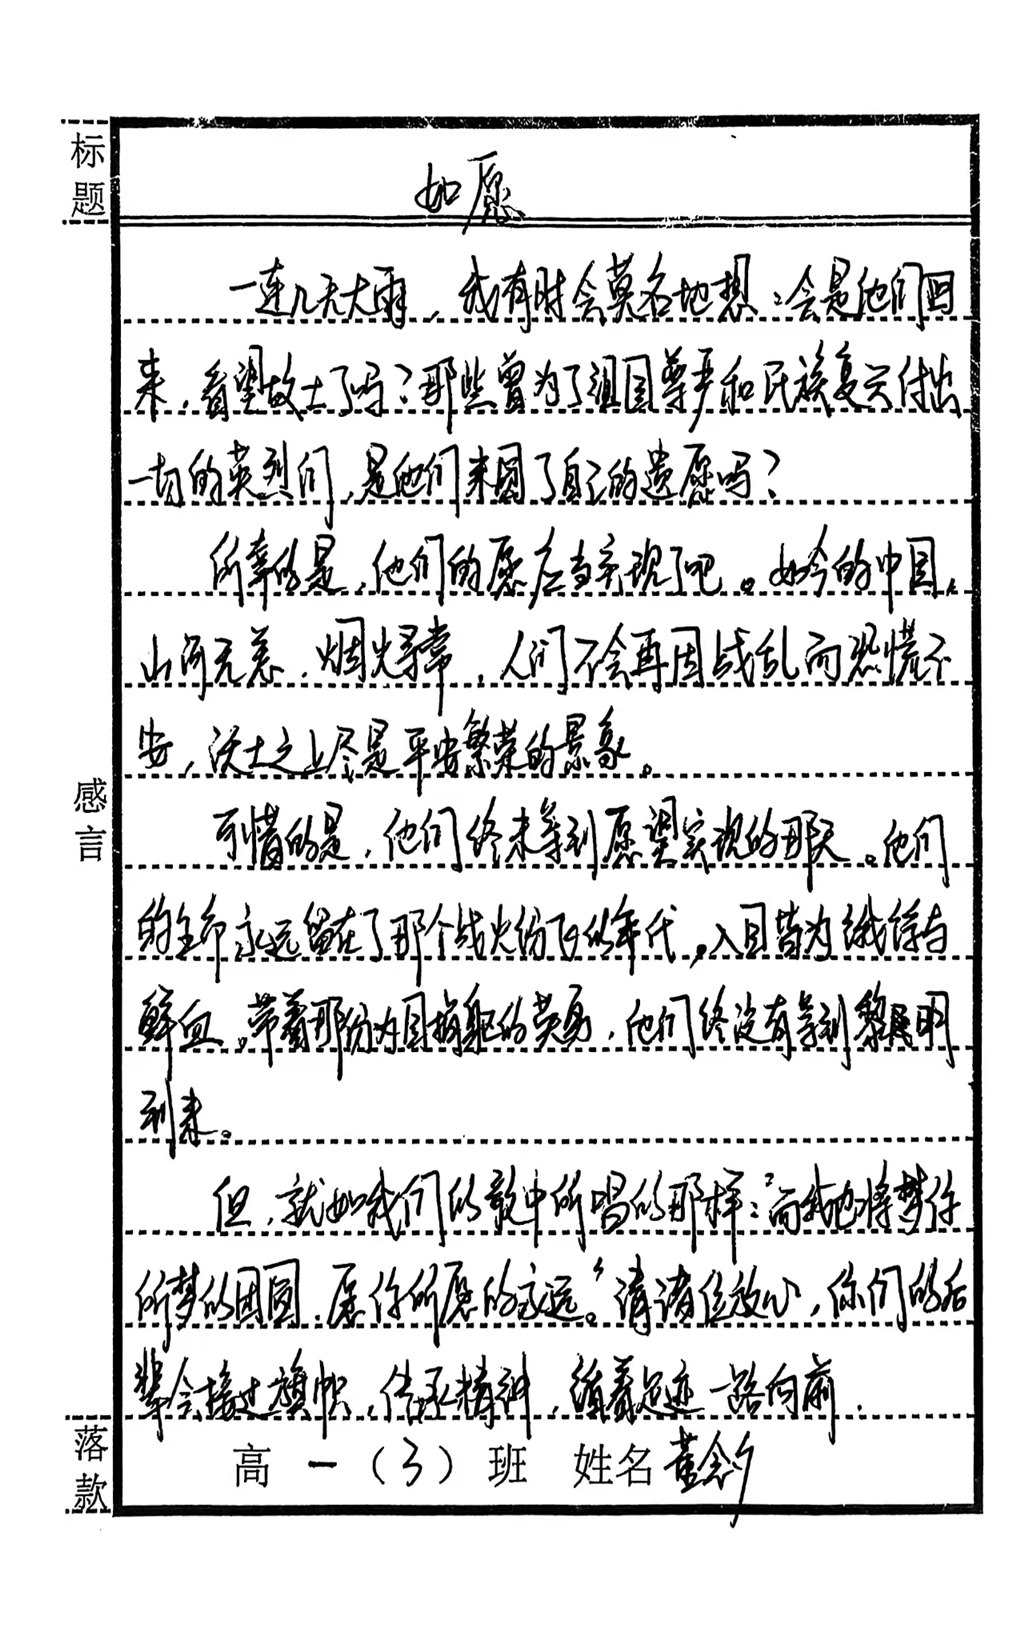 标题
如愿
一连几天大雨，我有时会莫名地想：会是他们回
来，看望故土了吗？那些曾为了祖国尊严和民族复兴付出
一切的英烈们，是他们来圆了自己的遗愿吗？
所幸的是，他们的愿应当实现了吧。如今的中国，
山河无恙，烟火寻常，人们不会再因战乱而恐慌不
安，沃土之上尽是平安繁荣的景象。
感言
可惜的是，他们终未等到愿望实现的那天。他们
的生命永远留在了那个战火纷飞的年代，入目皆为饿殍与
鲜血。带着那份为国捐躯的英勇，他们终没有等到黎明
到来。
但，就如我们的歌中所唱的那样：“而我也将梦你
所梦的团圆，愿你所愿的永远。”请诸位放心，你们的后
辈会接过旗帜，传承精神，循着足迹一路向前.
落款
高一（3）班 姓名 董念夕